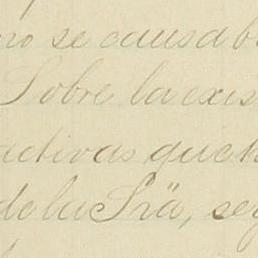 no se causa
Sobre la exis
activas que
de la Srã, seg